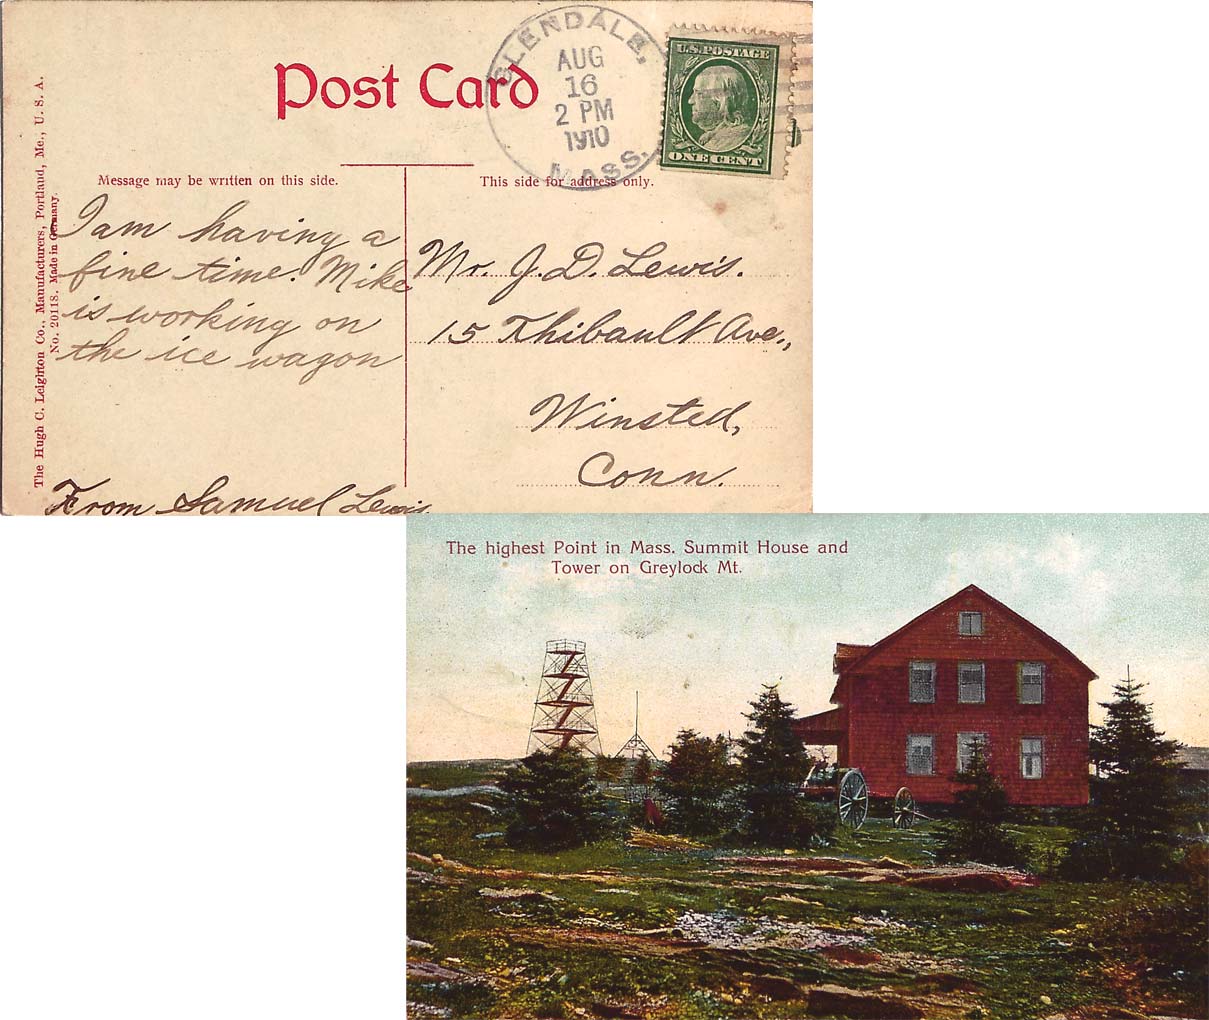 GLENDALE,
AUG
16
2 PM
1910
MASS.
U.S. POSTAGE
ONE CENT
Post Card
Message may be written on this side.
This side for address only.
The Hugh C. Leighton Co., Manufacturers, Portland, Me., U. S. A.
No. 20118. Made in Germany.
I am having a
fine time. Mike
is working on
the ice wagon
From Samuel Lewis
Mr. J. D. Lewis.
15 Thibault Ave.,
Winsted,
Conn.
The highest Point in Mass. Summit House and
Tower on Greylock Mt.